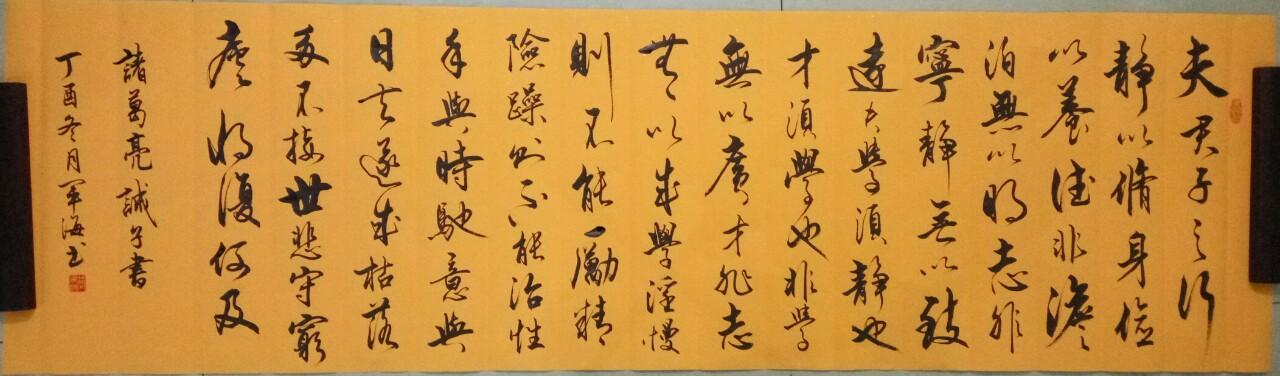 夫君子之行
靜以脩身儉
以養德非澹
泊無以明志非
寧靜无以致
遠夫學須靜也
才須學也非學
無以廣才非志
無以成學淫慢
則不能勵精
險躁則不能治性
年與時馳意與
日去遂成枯落
多不接世悲守窮
廬將復何及
諸葛亮誡子書
丁酉冬月军海书